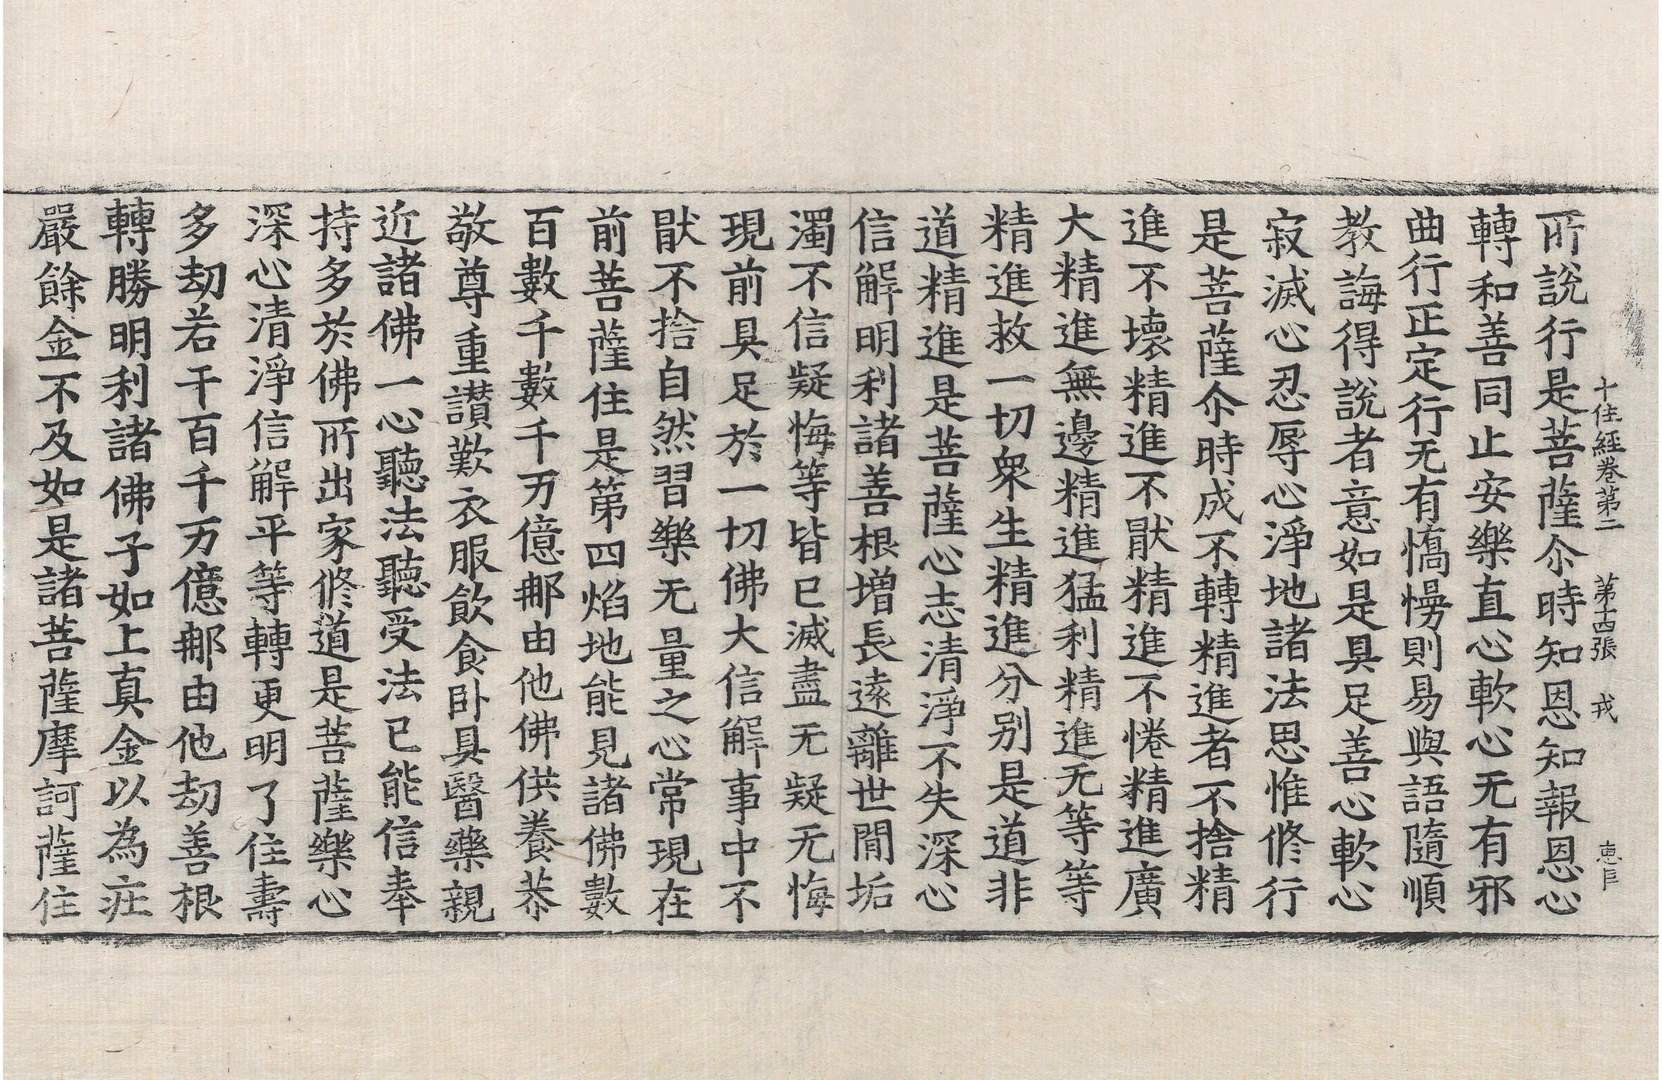 十住經卷第二　第十四張　戎　惠巨
所說行是菩薩尒時知恩知報恩心
轉和善同止安樂直心軟心无有邪
曲行正定行无有憍慢則易與語隨順
教誨得說者意如是具足善心軟心
寂滅心忍辱心淨地諸法思惟修行
是菩薩尒時成不轉精進者不捨精
進不壞精進不猒精進不惓精進廣
大精進無邊精進猛利精進无等等
精進救一切衆生精進分別是道非
道精進是菩薩心志清淨不失深心
信解明利諸善根增長遠離世間垢
濁不信疑悔等皆已滅盡无疑无悔
現前具足於一切佛大信解事中不
猒不捨自然習樂无量之心常現在
前菩薩住是第四焰地能見諸佛數
百數千數千万億那由他佛供養恭
敬尊重讃歎衣服飲食卧具醫藥親
近諸佛一心聽法聽受法已能信奉
持多於佛所出家修道是菩薩樂心
深心清淨信解平等轉更明了住壽
多劫若干百千万億那由他劫善根
轉勝明利諸佛子如上真金以為庄
嚴餘金不及如是諸菩薩摩訶薩住